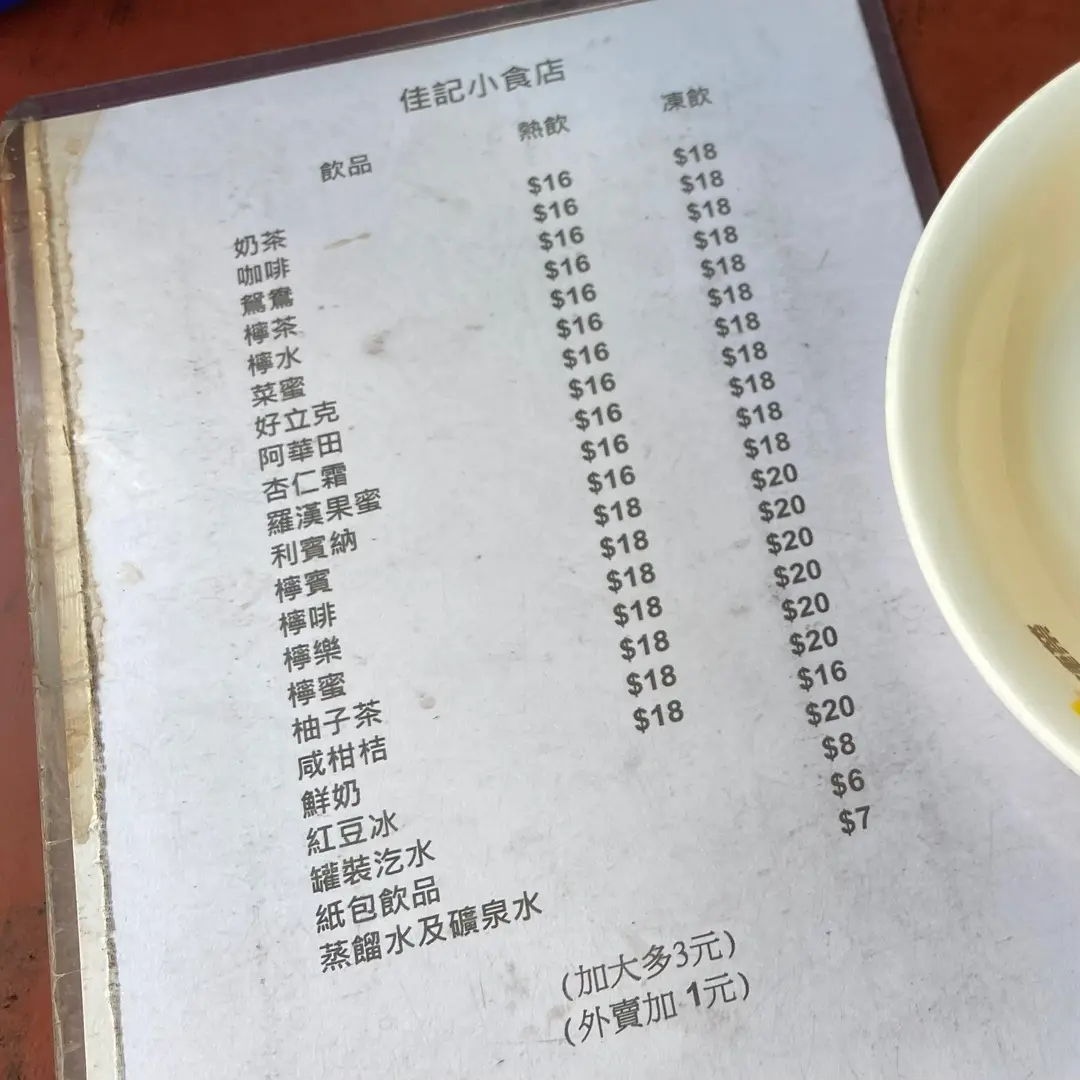 佳記小食店
飲品 熱飲 凍飲
奶茶 $16 $18
咖啡 $16 $18
鴛鴦 $16 $18
檸茶 $16 $18
檸水 $16 $18
菜蜜 $16 $18
好立克 $16 $18
阿華田 $16 $18
杏仁霜 $16 $18
羅漢果蜜 $16 $18
利賓納 $16 $18
檸賓 $18 $20
檸啡 $18 $20
檸樂 $18 $20
檸蜜 $18 $20
柚子茶 $18 $20
咸柑桔 $18 $20
鮮奶 $18 $16
紅豆冰 $20
罐裝汔水 $8
紙包飲品 $6
蒸餾水及礦泉水 $7
(加大多3元)
(外賣加 1元)